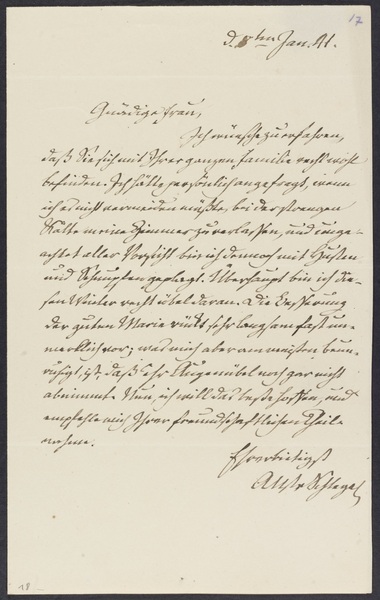 17
d. 8ten Jan. 41.
Gnädige Frau,
Ich wünsche zu erfahren,
daß Sie sich mit Ihrer ganzen Familie recht wohl
befinden. Ich hätte persönlich angefragt, wenn
ich es nicht vermeiden müßte, bei der strengen
Kälte meine Zimmer zu verlassen, und unge-
achtet aller Vorsicht bin ich dennoch mit Husten
und Schnupfen geplagt. Überhaupt bin ich die-
sen Winter recht übel daran. Die Besserung
der guten Marie rückt sehr langsam fast un-
merklich vor; was mich aber am meisten beun-
ruhigt, ist, daß ihr Augenübel noch gar nicht
abnimmt. Nun, ich will das beste hoffen, und
empfehle mich Ihrer freundschaftlichen Theil-
nahme.
Ehrerbietigst
AWvSchlegel
18